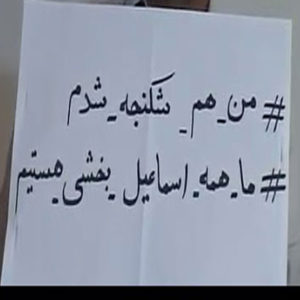 #من_هم_شکنجه_شدم
#ما_همه_اسماعیل_بخشی_هستیم